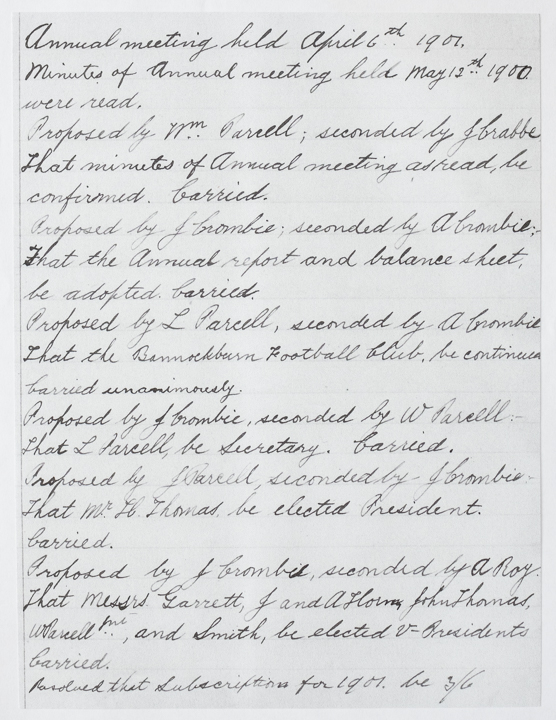 Annual meeting held April 6th 1901.
Minutes of Annual meeting held May 12th 1900
were read.
Proposed by Wm. Parcell; seconded by J Crabbe
That minutes of Annual meeting as read, be
confirmed. Carried.
Proposed by J Crombie; seconded by A Crombie:-
That the Annual report and balance sheet,
be adopted. Carried.
Proposed by L Parcell, seconded by A Crombie
That the Bannockburn Football Club, be continued
Carried unanimously.
Proposed by J Crombie, seconded by W Parcell:-
That L Parcell, be Secretary. Carried.
Proposed by J Parcell, seconded by J Crombie-
That Mr H. Thomas, be elected President.
Carried.
Proposed by J Crombie, seconded by A Roy.
That Messrs. Garrett, J and A Horn, John Thomas,
W Parcell, and Smith, be elected V-Presidents
Carried.
Resolved that Subscription for 1901. be 3/6